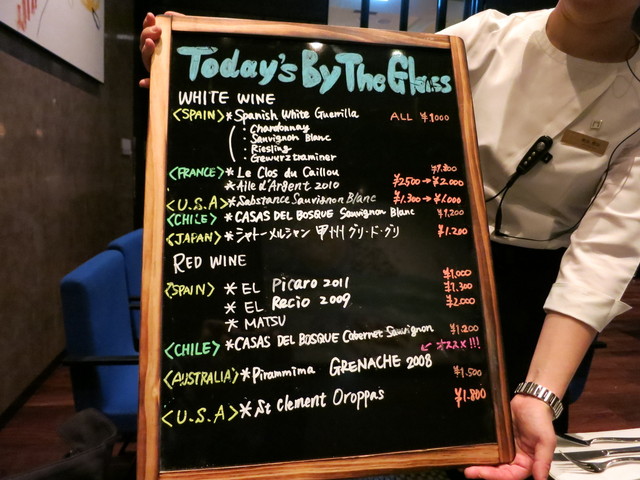 Today's By The Glass
WHITE WINE
<SPAIN> * Spanish White Guerrilla ALL ¥1000
( : Chardonnay
: Sauvignon Blanc
: Riesling
: Gewurztraminer
<FRANCE> * Le Clos du Caillou ¥1.300
* Aile d'Argent 2010 ¥2500 → ¥2.000
<U.S.A> * Substance Sauvignon Blanc ¥1.300 → ¥1.000
<CHILE> * CASAS DEL BOSQUE Sauvignon Blanc ¥1,200
<JAPAN> * シャトーメルシャン 甲州 グリ・ド・グリ ¥1.200
RED WINE
<SPAIN> * EL Picaro 2011 ¥1.000
* EL Recio 2009 ¥1.300
* MATSU ¥2000
<CHILE> * CASAS DEL BOSQUE Cabernet Sauvignon ¥1.200
↙ オススメ!!!
<AUSTRALIA> * Pirammima GRENACHE 2008 ¥1.500
<U.S.A> * St Clement Oroppas ¥1.800